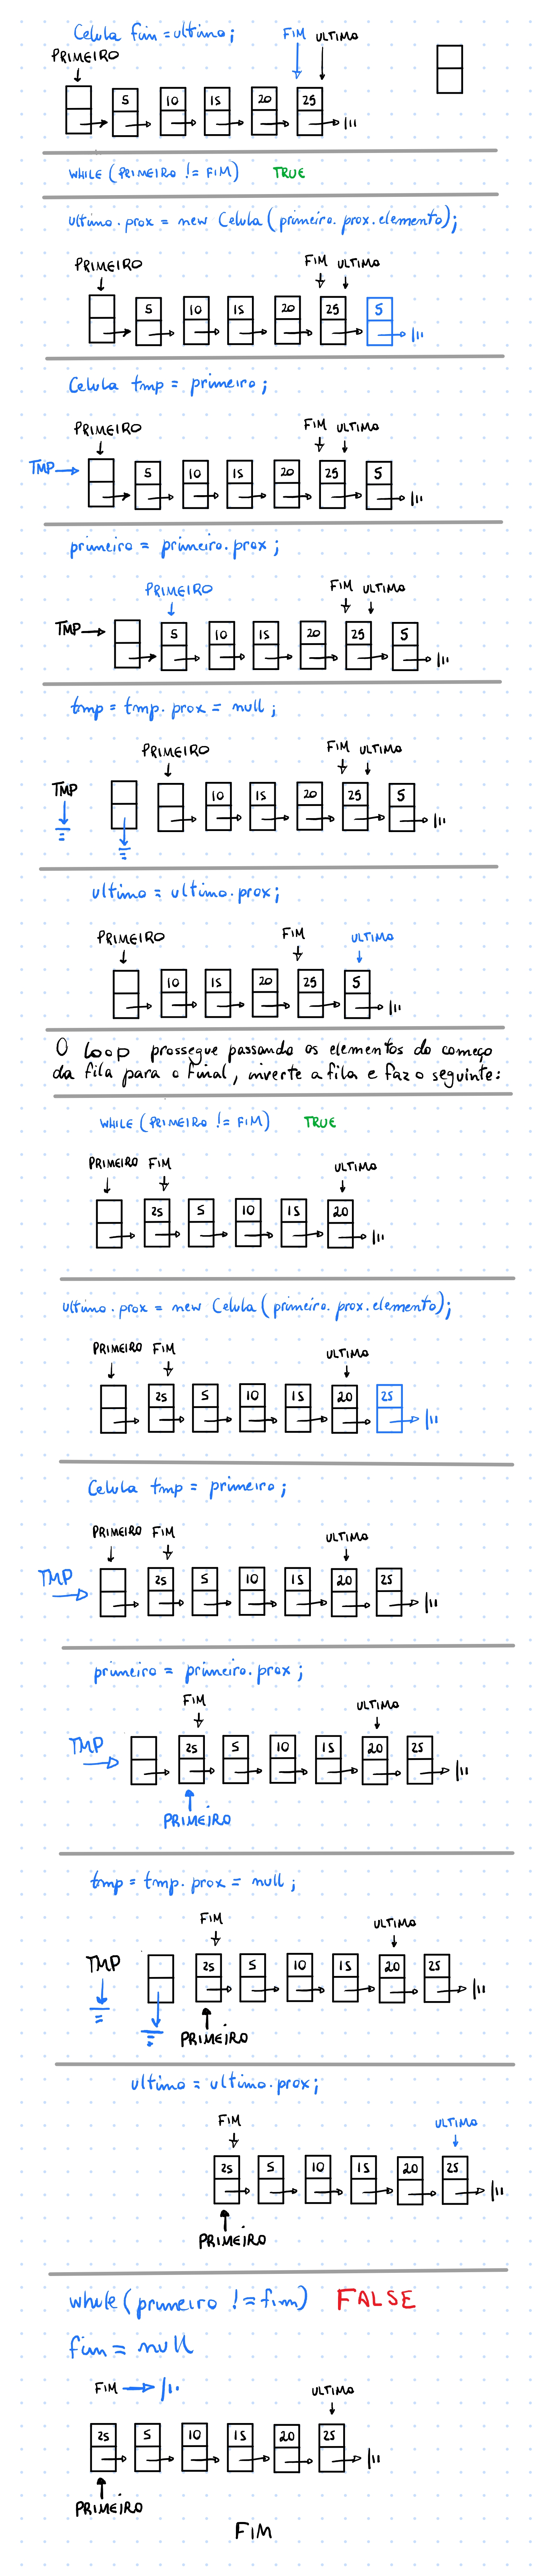 Celula fim = ultimo;
FIM ULTIMO
PRIMEIRO
5 10 15 20 25
WHILE (PRIMEIRO != FIM) TRUE
ultimo.prox = new Celula (primeiro.prox.elemento);
PRIMEIRO FIM ULTIMO
5 10 15 20 25 5
Celula tmp = primeiro;
PRIMEIRO FIM ULTIMO
TMP 5 10 15 20 25 5
primeiro = primeiro.prox;
PRIMEIRO FIM ULTIMO
TMP 5 10 15 20 25 5
tmp = tmp.prox = null;
PRIMEIRO FIM ULTIMO
TMP 10 15 20 25 5
ultimo = ultimo.prox;
PRIMEIRO FIM ULTIMO
10 15 20 25 5
O loop prossegue passando os elementos do começo
da fila para o final, inverte a fila e faz o seguinte:
WHILE (PRIMEIRO != FIM) TRUE
PRIMEIRO FIM ULTIMO
25 5 10 15 20
ultimo.prox = new Celula (primeiro.prox.elemento);
PRIMEIRO FIM ULTIMO
25 5 10 15 20 25
Celula tmp = primeiro;
PRIMEIRO FIM ULTIMO
TMP 25 5 10 15 20 25
primeiro = primeiro.prox;
FIM ULTIMO
TMP 25 5 10 15 20 25
PRIMEIRO
tmp = tmp.prox = null;
FIM ULTIMO
TMP 25 5 10 15 20 25
PRIMEIRO
ultimo = ultimo.prox;
FIM ULTIMO
25 5 10 15 20 25
PRIMEIRO
while (primeiro != fim) FALSE
fim = null
FIM ULTIMO
25 5 10 15 20 25
PRIMEIRO
FIM